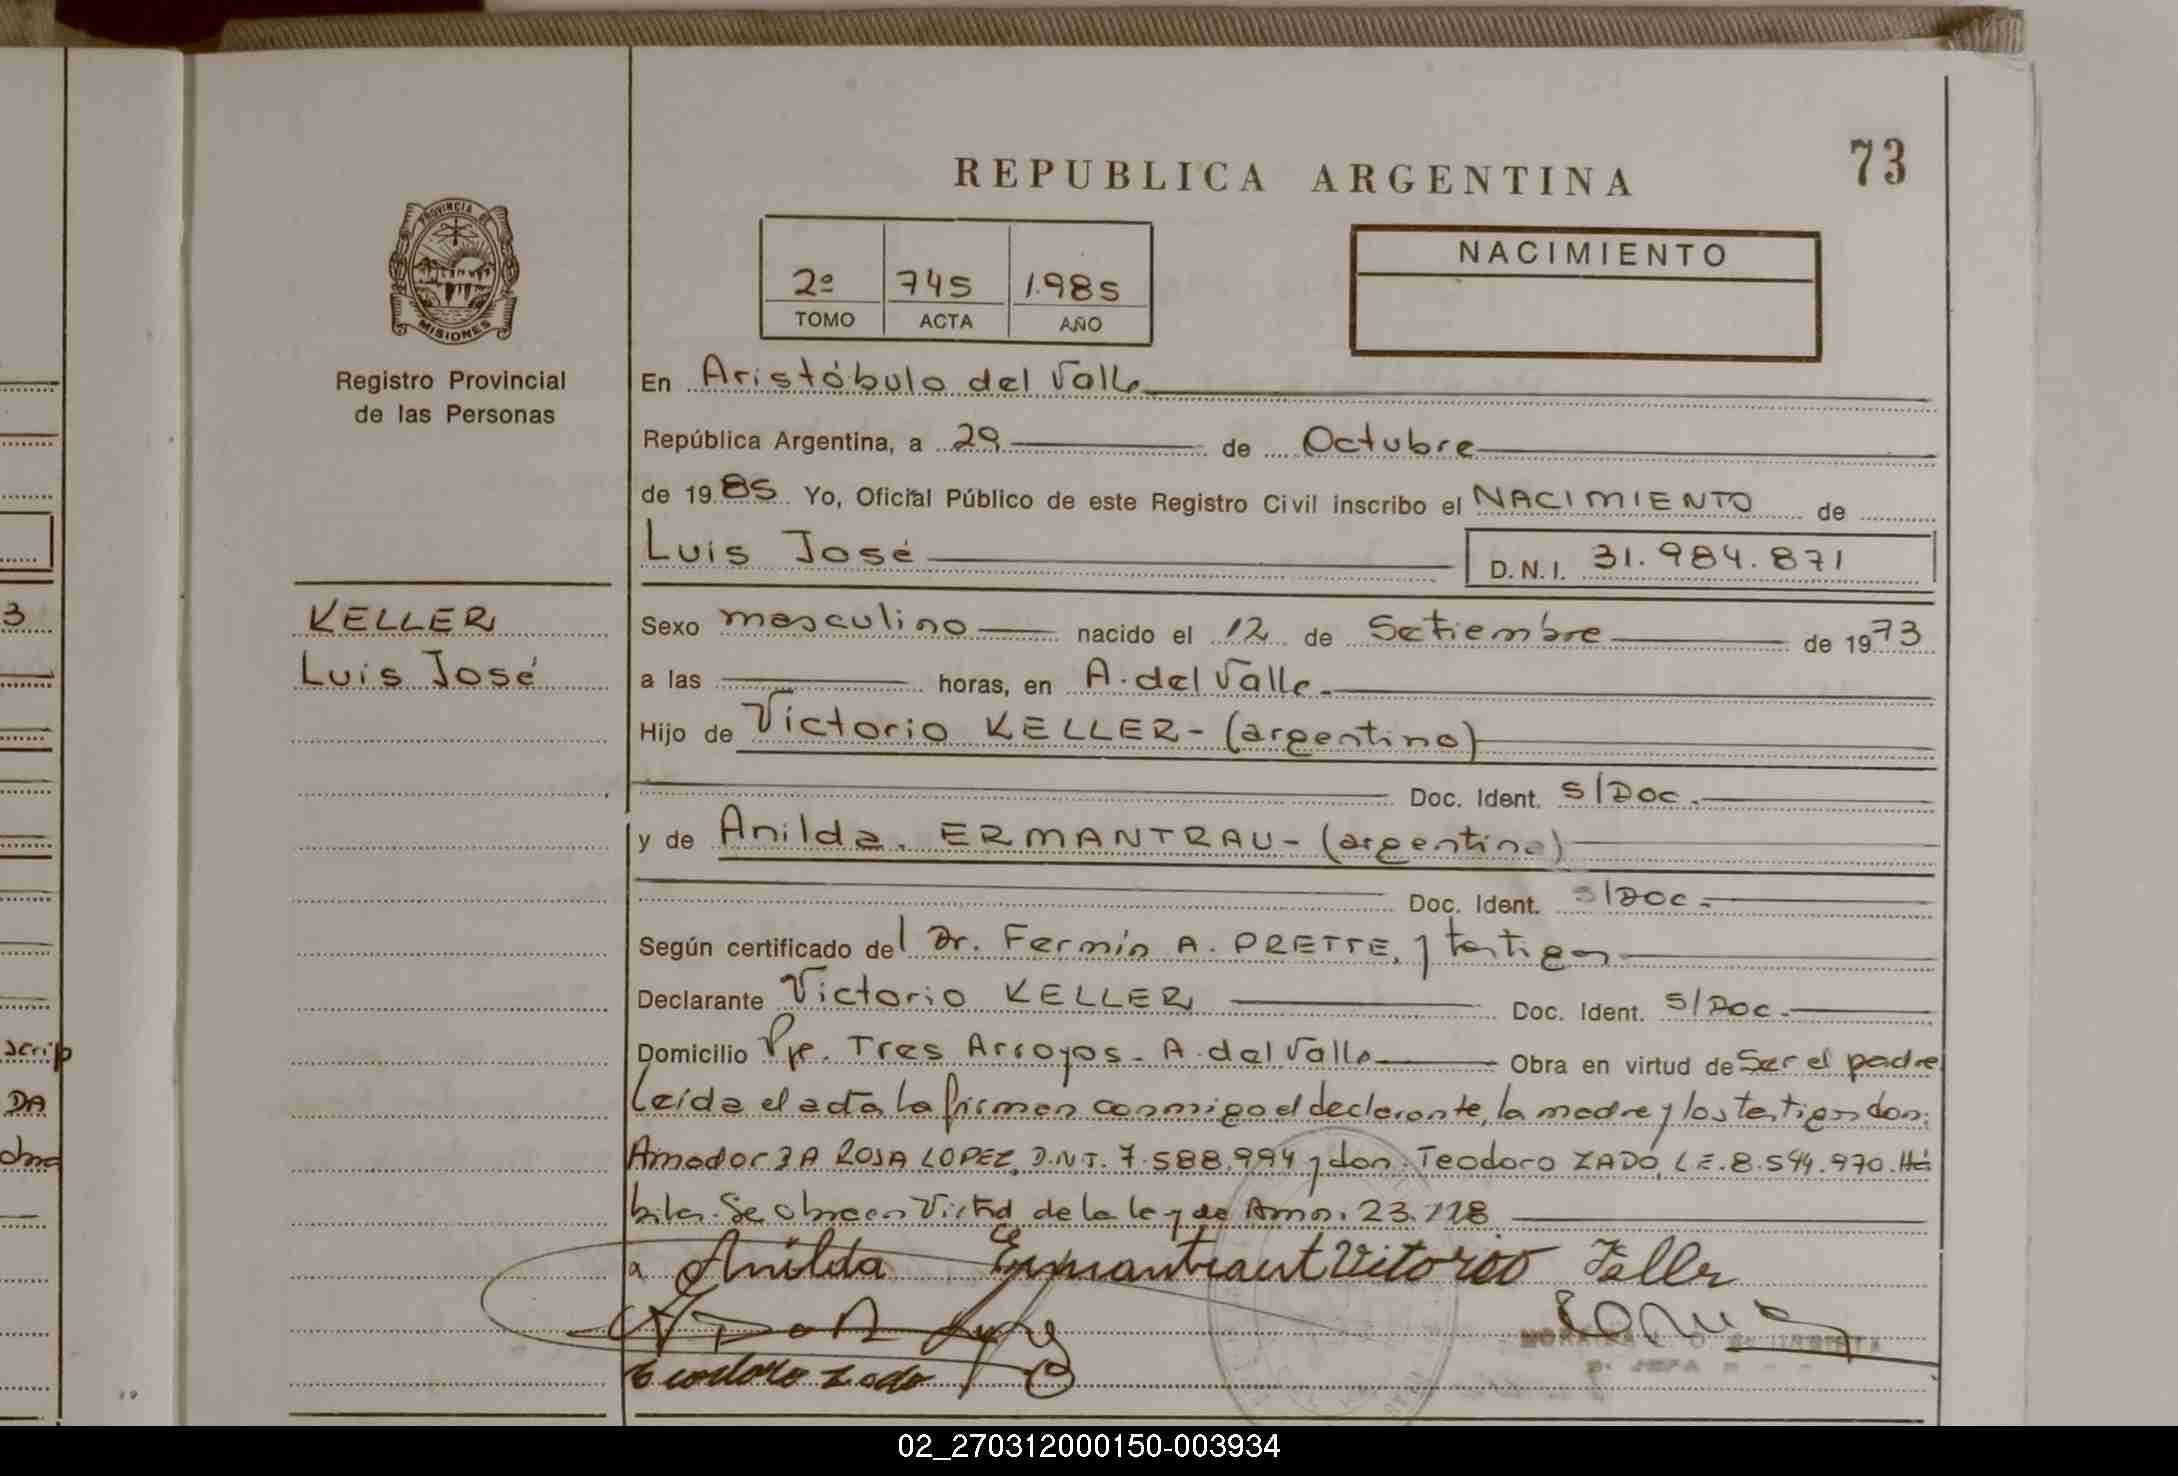 73
REPUBLICA ARGENTINA
PROVINCIA DE
MISIONES
Registro Provincial
de las Personas
2º 745 1.985
TOMO ACTA AÑO
NACIMIENTO
En Aristóbulo del Valle
República Argentina, a 29 de Octubre
de 1985 Yo, Oficial Público de este Registro Civil inscribo el NACIMIENTO de
Luis José D.N.I. 31.984.871
KELLER
Luis José
Sexo masculino nacido el 12 de Setiembre de 1973
a las horas, en A. del Valle.
Hijo de Victorio KELLER - (argentino)
Doc. Ident. S/Doc.
y de Anilda. ERMANTRAU - (argentina)
Doc. Ident. S/Doc.
Según certificado del Dr. Fermín A. PRETTE, y testigos
Declarante Victorio KELLER Doc. Ident. S/Doc.
Domicilio Pje. Tres Arroyos - A. del Valle Obra en virtud de Ser el padre
Leída el acta la firman conmigo el declarante, la madre y los testigos don:
Amador DA ROSA LOPEZ, D.N.I. 7.588.994 y don: Teodoro ZADO, L.E. 8.544.970. Há
biles. Se obra en Virtud de la ley de Amn. 23.128
a Anilda Ermantraut Vitorio Keller
Teodoro Zado
3
scrip
DA
02_270312000150-003934